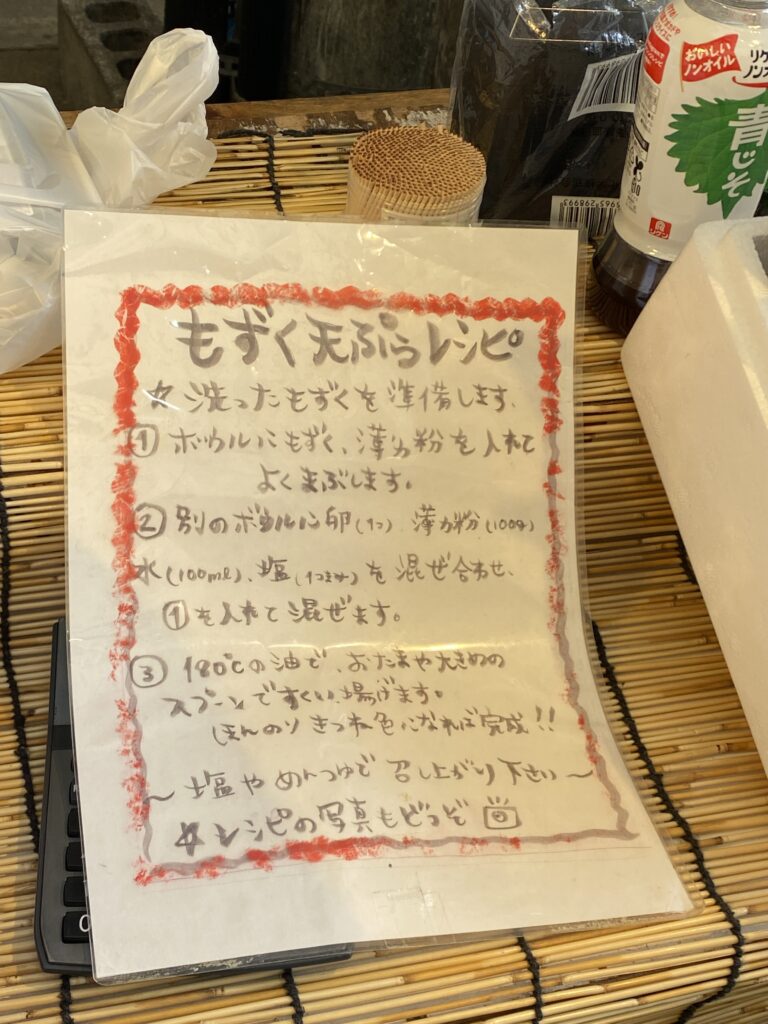 おいしい
ノンオイル
リケ
ノンオ
青じそ
リケン
もずく天ぷらレシピ
☆洗ったもずくを準備します、
①ボウルにもずく、薄力粉を入れて
よくまぶします。
②別のボウルに卵(1コ)薄力粉(100g)
水(100ml)、塩(1つまみ)を混ぜ合わせ、
①を入れて混ぜます。
③180℃の油で、おたまや大きめの
スプーンですくい、揚げます。
ほんのりきつね色になれば完成!!
~塩やめんつゆで召し上がり下さい~
☆レシピの写真もどうぞ